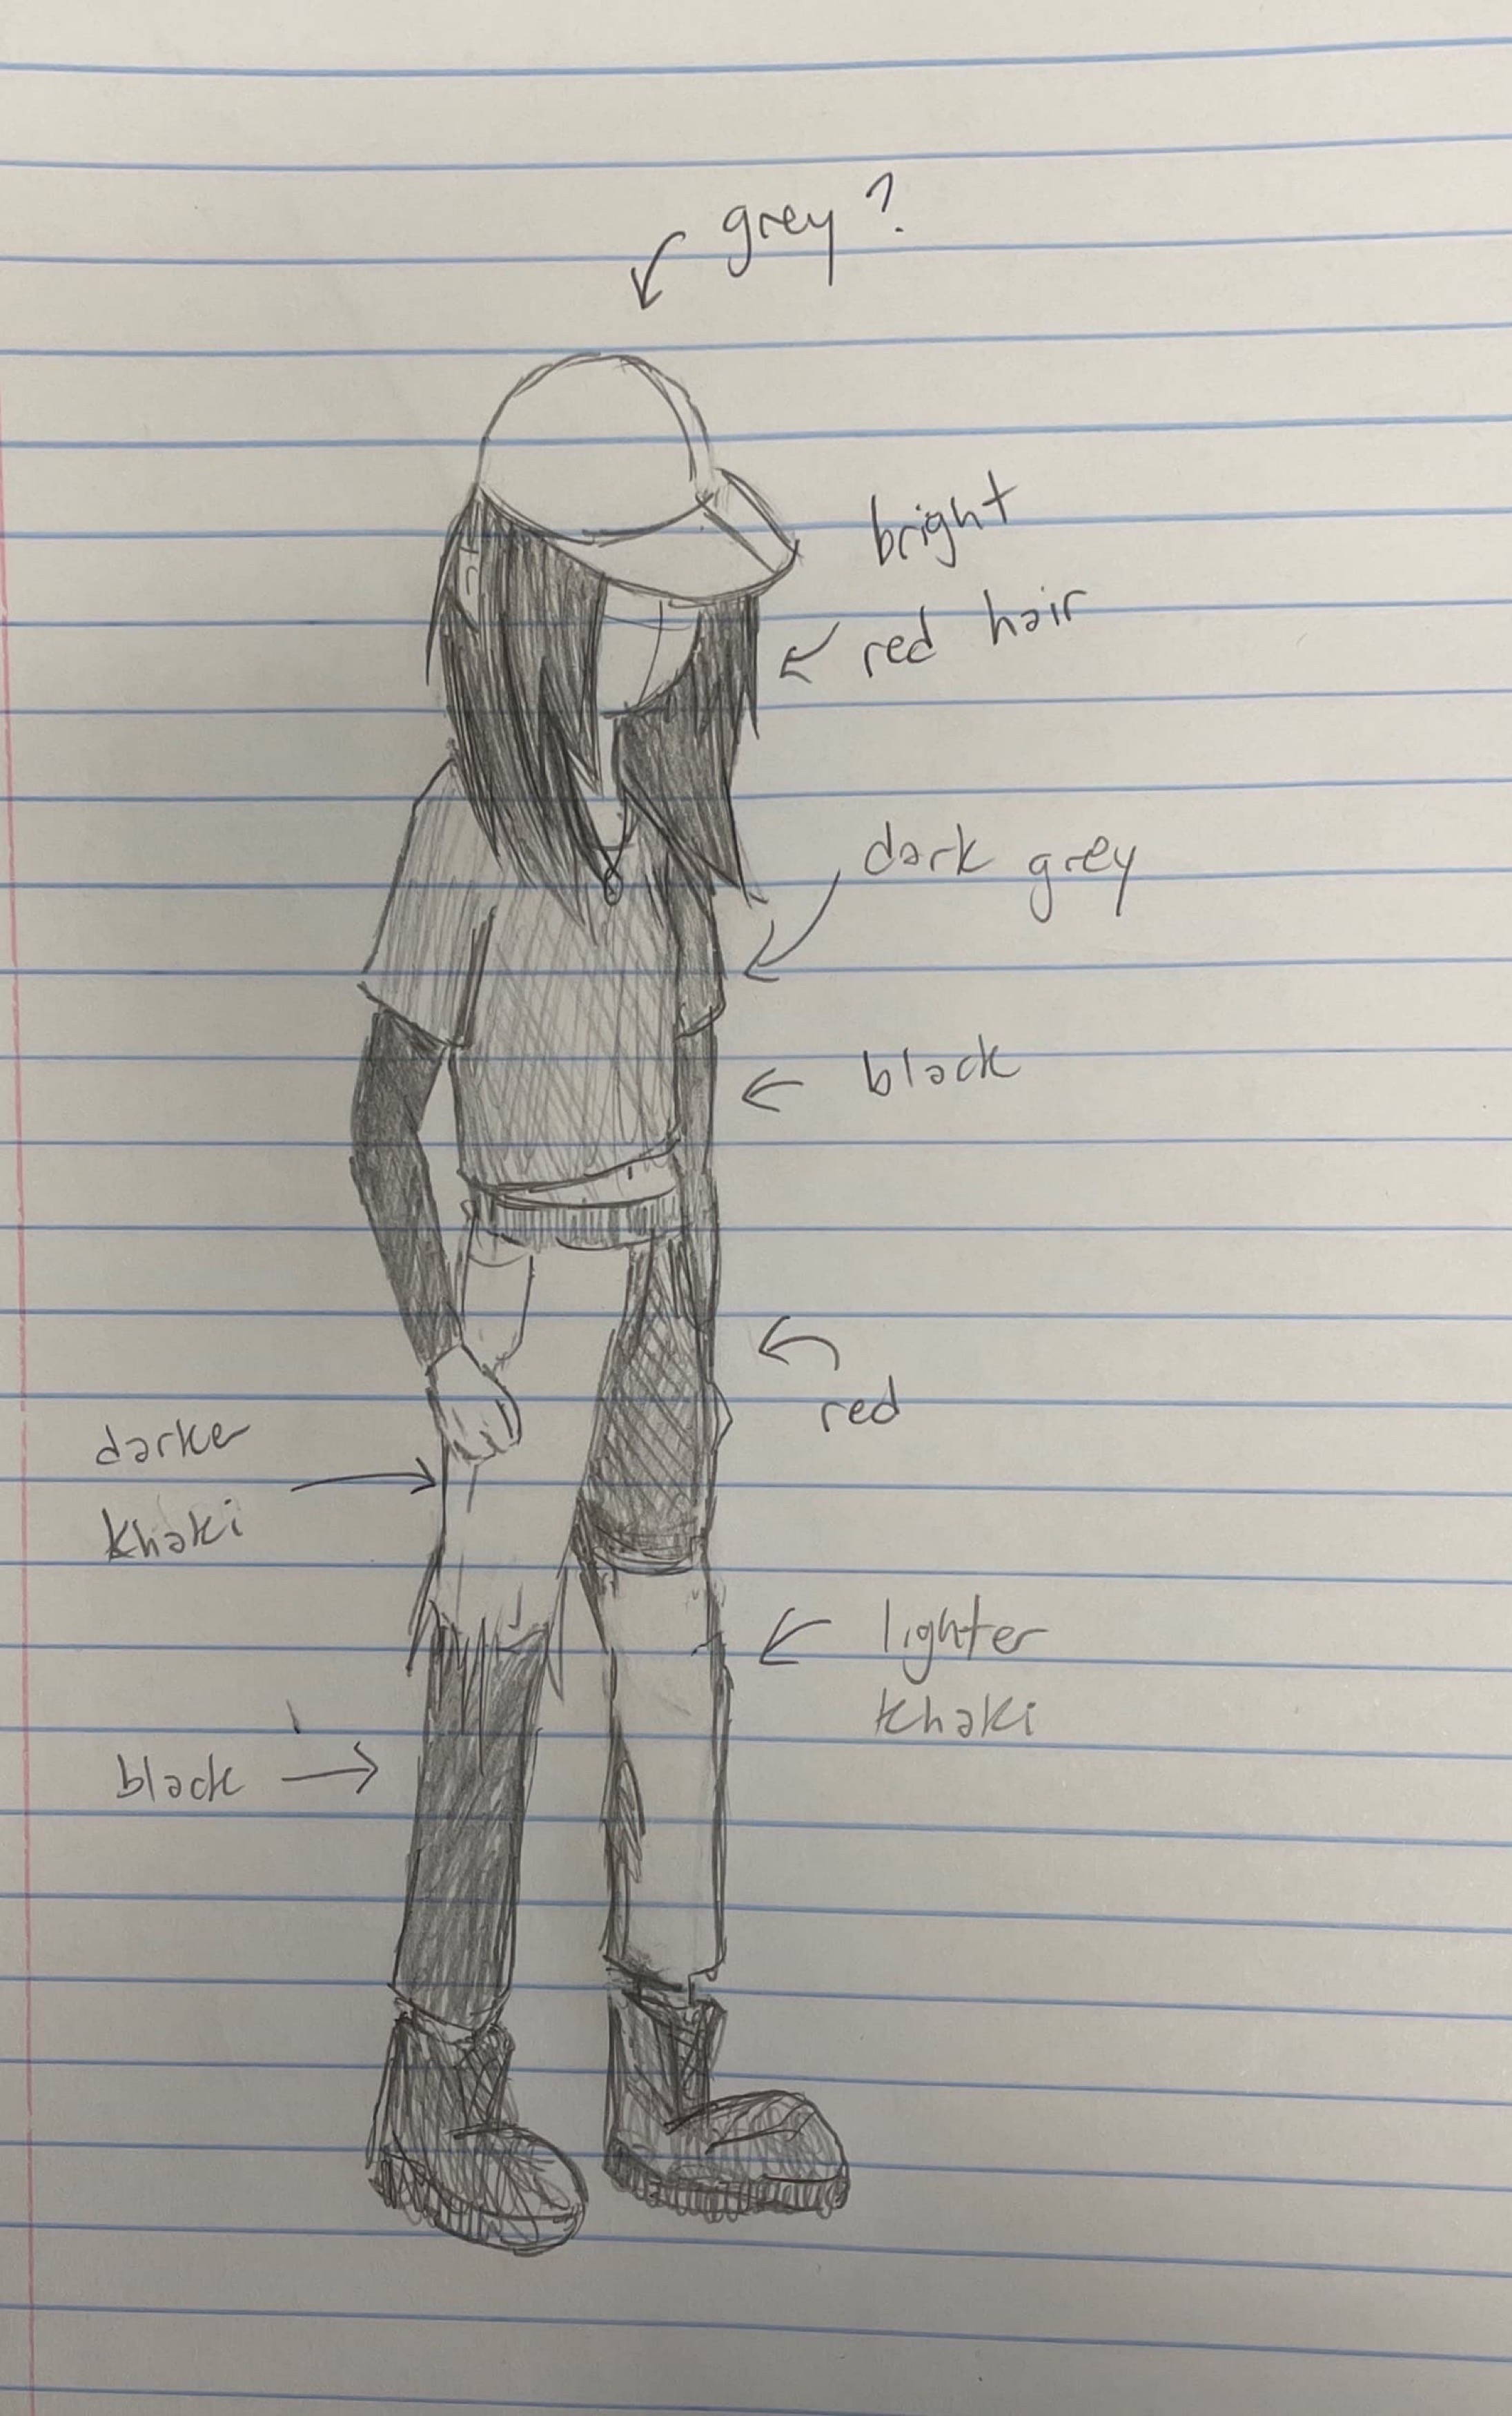 grey?
bright
red hair
dark grey
black
red
darker
khaki
lighter
khaki
black